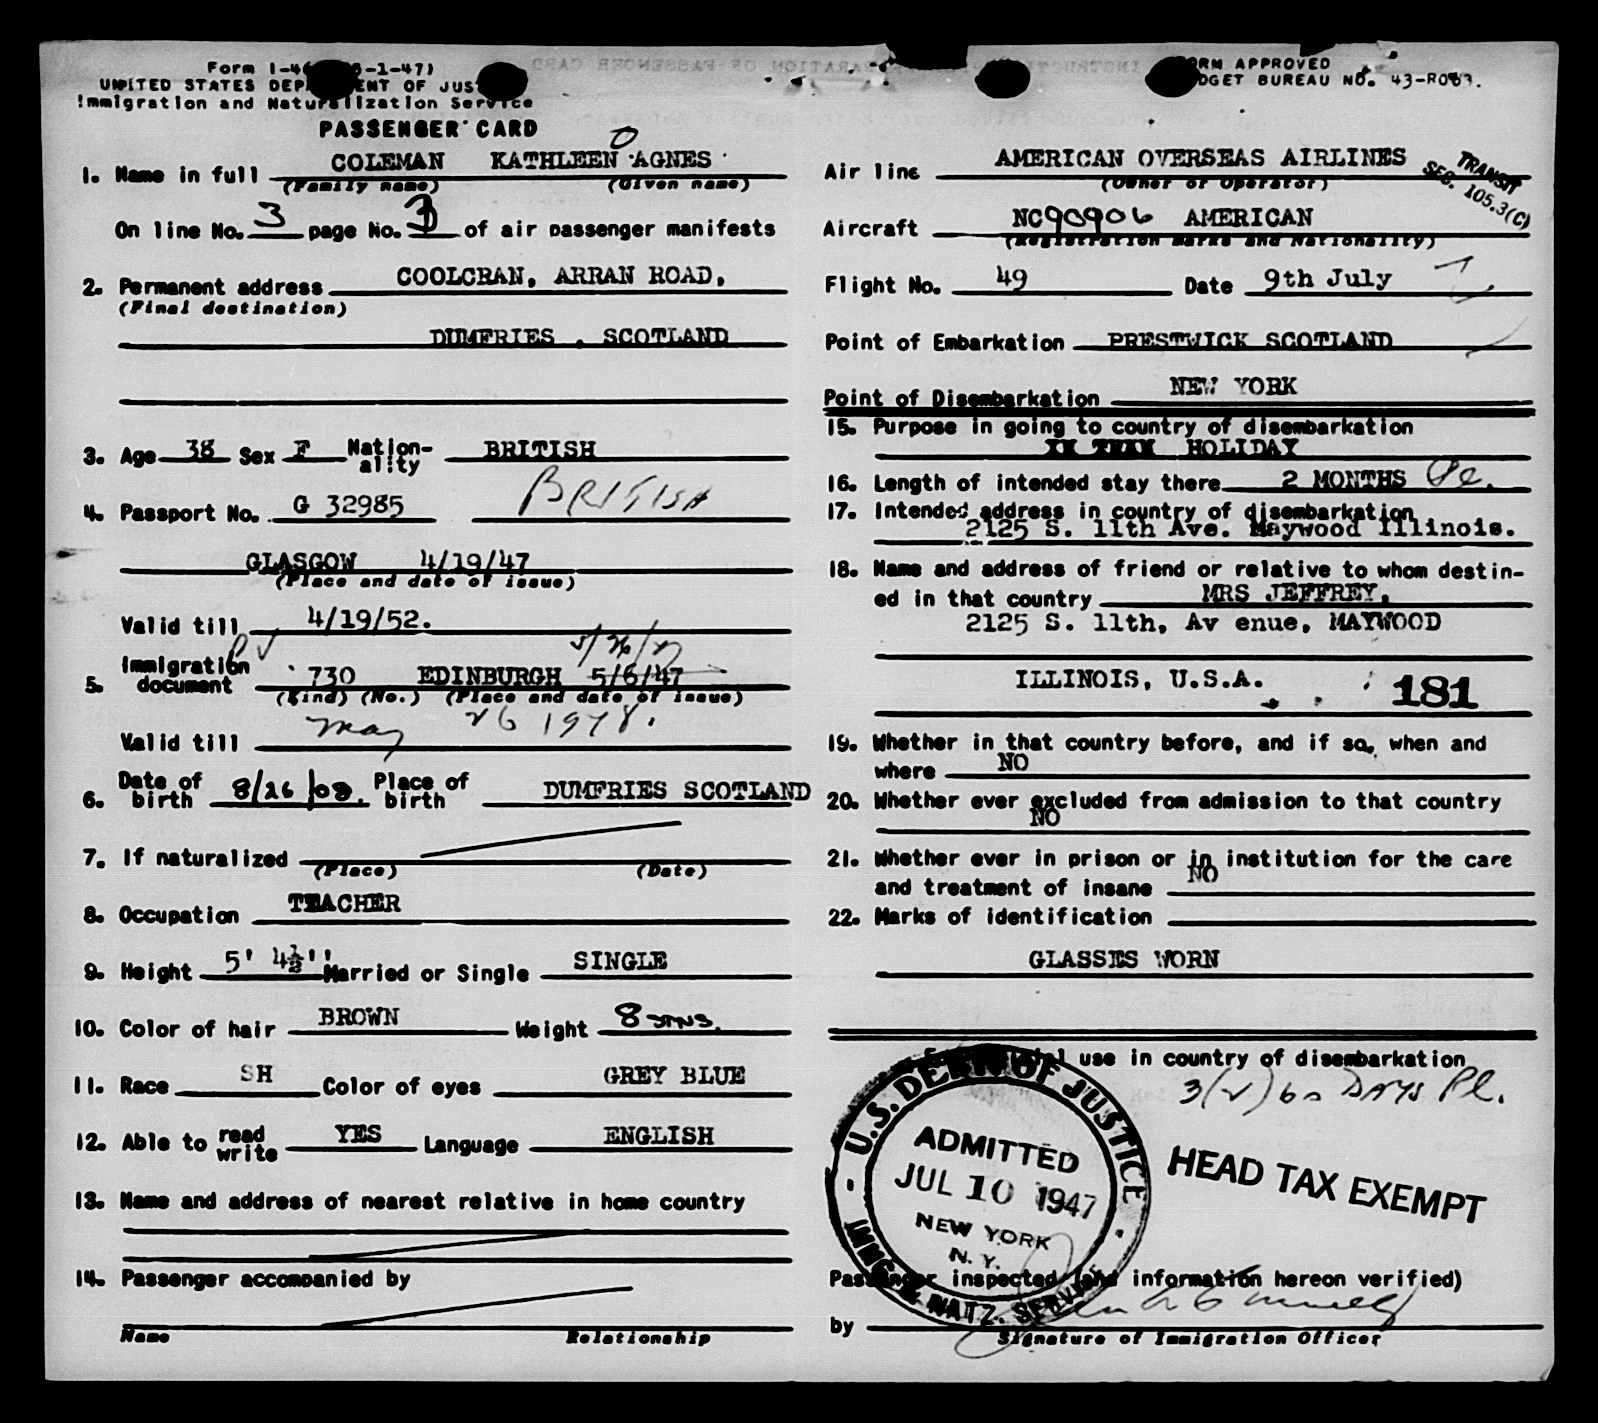 Form I-4 -1-47)
UNITED STATES DEP ENT OF JUS
Immigration and Naturalization Service
PASSENGER CARD
FORM APPROVED
BUDGET BUREAU NO. 43-R083.
1. Name in full COLEMAN KATHLEEN AGNES
(Family name) (Given name)
On line No. 3 page No. 3 of air passenger manifests
2. Permanent address COOLCRAN, ARRAN ROAD,
(Final destination)
DUMFRIES , SCOTLAND
3. Age 38 Sex F Nation-
ality BRITISH
4. Passport No. G 32985 BRITISH
GLASGOW 4/19/47
(Place and date of issue)
Valid till 4/19/52.
5/26/47
5. Immigration
document 730 EDINBURGH 5/6/47
(Kind) (No.) (Place and date of issue)
Valid till may 26 1948.
6. Date of
birth 8/26/08. Place of
birth DUMFRIES SCOTLAND
7. If naturalized
(Place) (Date)
8. Occupation TEACHER
9. Height 5' 4½'' Married or Single SINGLE
10. Color of hair BROWN Weight 8 STNS.
11. Race SH Color of eyes GREY BLUE
12. Able to read
write YES Language ENGLISH
13. Name and address of nearest relative in home country
14. Passenger accompanied by
Name Relationship
Air line AMERICAN OVERSEAS AIRLINES
(Owner or Operator)
TRANSIT
SEC. 105.3(C)
Aircraft NC90906 AMERICAN
(Registration marks and Nationality)
Flight No. 49 Date 9th July
Point of Embarkation PRESTWICK SCOTLAND
Point of Disembarkation NEW YORK
15. Purpose in going to country of disembarkation
HOLIDAY
16. Length of intended stay there 2 MONTHS Pl.
17. Intended address in country of disembarkation
2125 S. 11th Ave. Maywood Illinois.
18. Name and address of friend or relative to whom destin-
ed in that country MRS JEFFREY,
2125 S. 11th, Av enue, MAYWOOD
ILLINOIS, U.S.A.
181
19. Whether in that country before, and if so, when and
where NO
20. Whether ever excluded from admission to that country
NO
21. Whether ever in prison or in institution for the care
and treatment of insane NO
22. Marks of identification
GLASSES WORN
use in country of disembarkation
3(2) 60 DAYS Pl.
U.S. DEPT. OF JUSTICE
ADMITTED
JUL 10 1947
NEW YORK
N. Y.
IMMI. & NATZ. SERVICE
HEAD TAX EXEMPT
Passenger inspected (and information hereon verified)
by
Signature of Immigration Officer